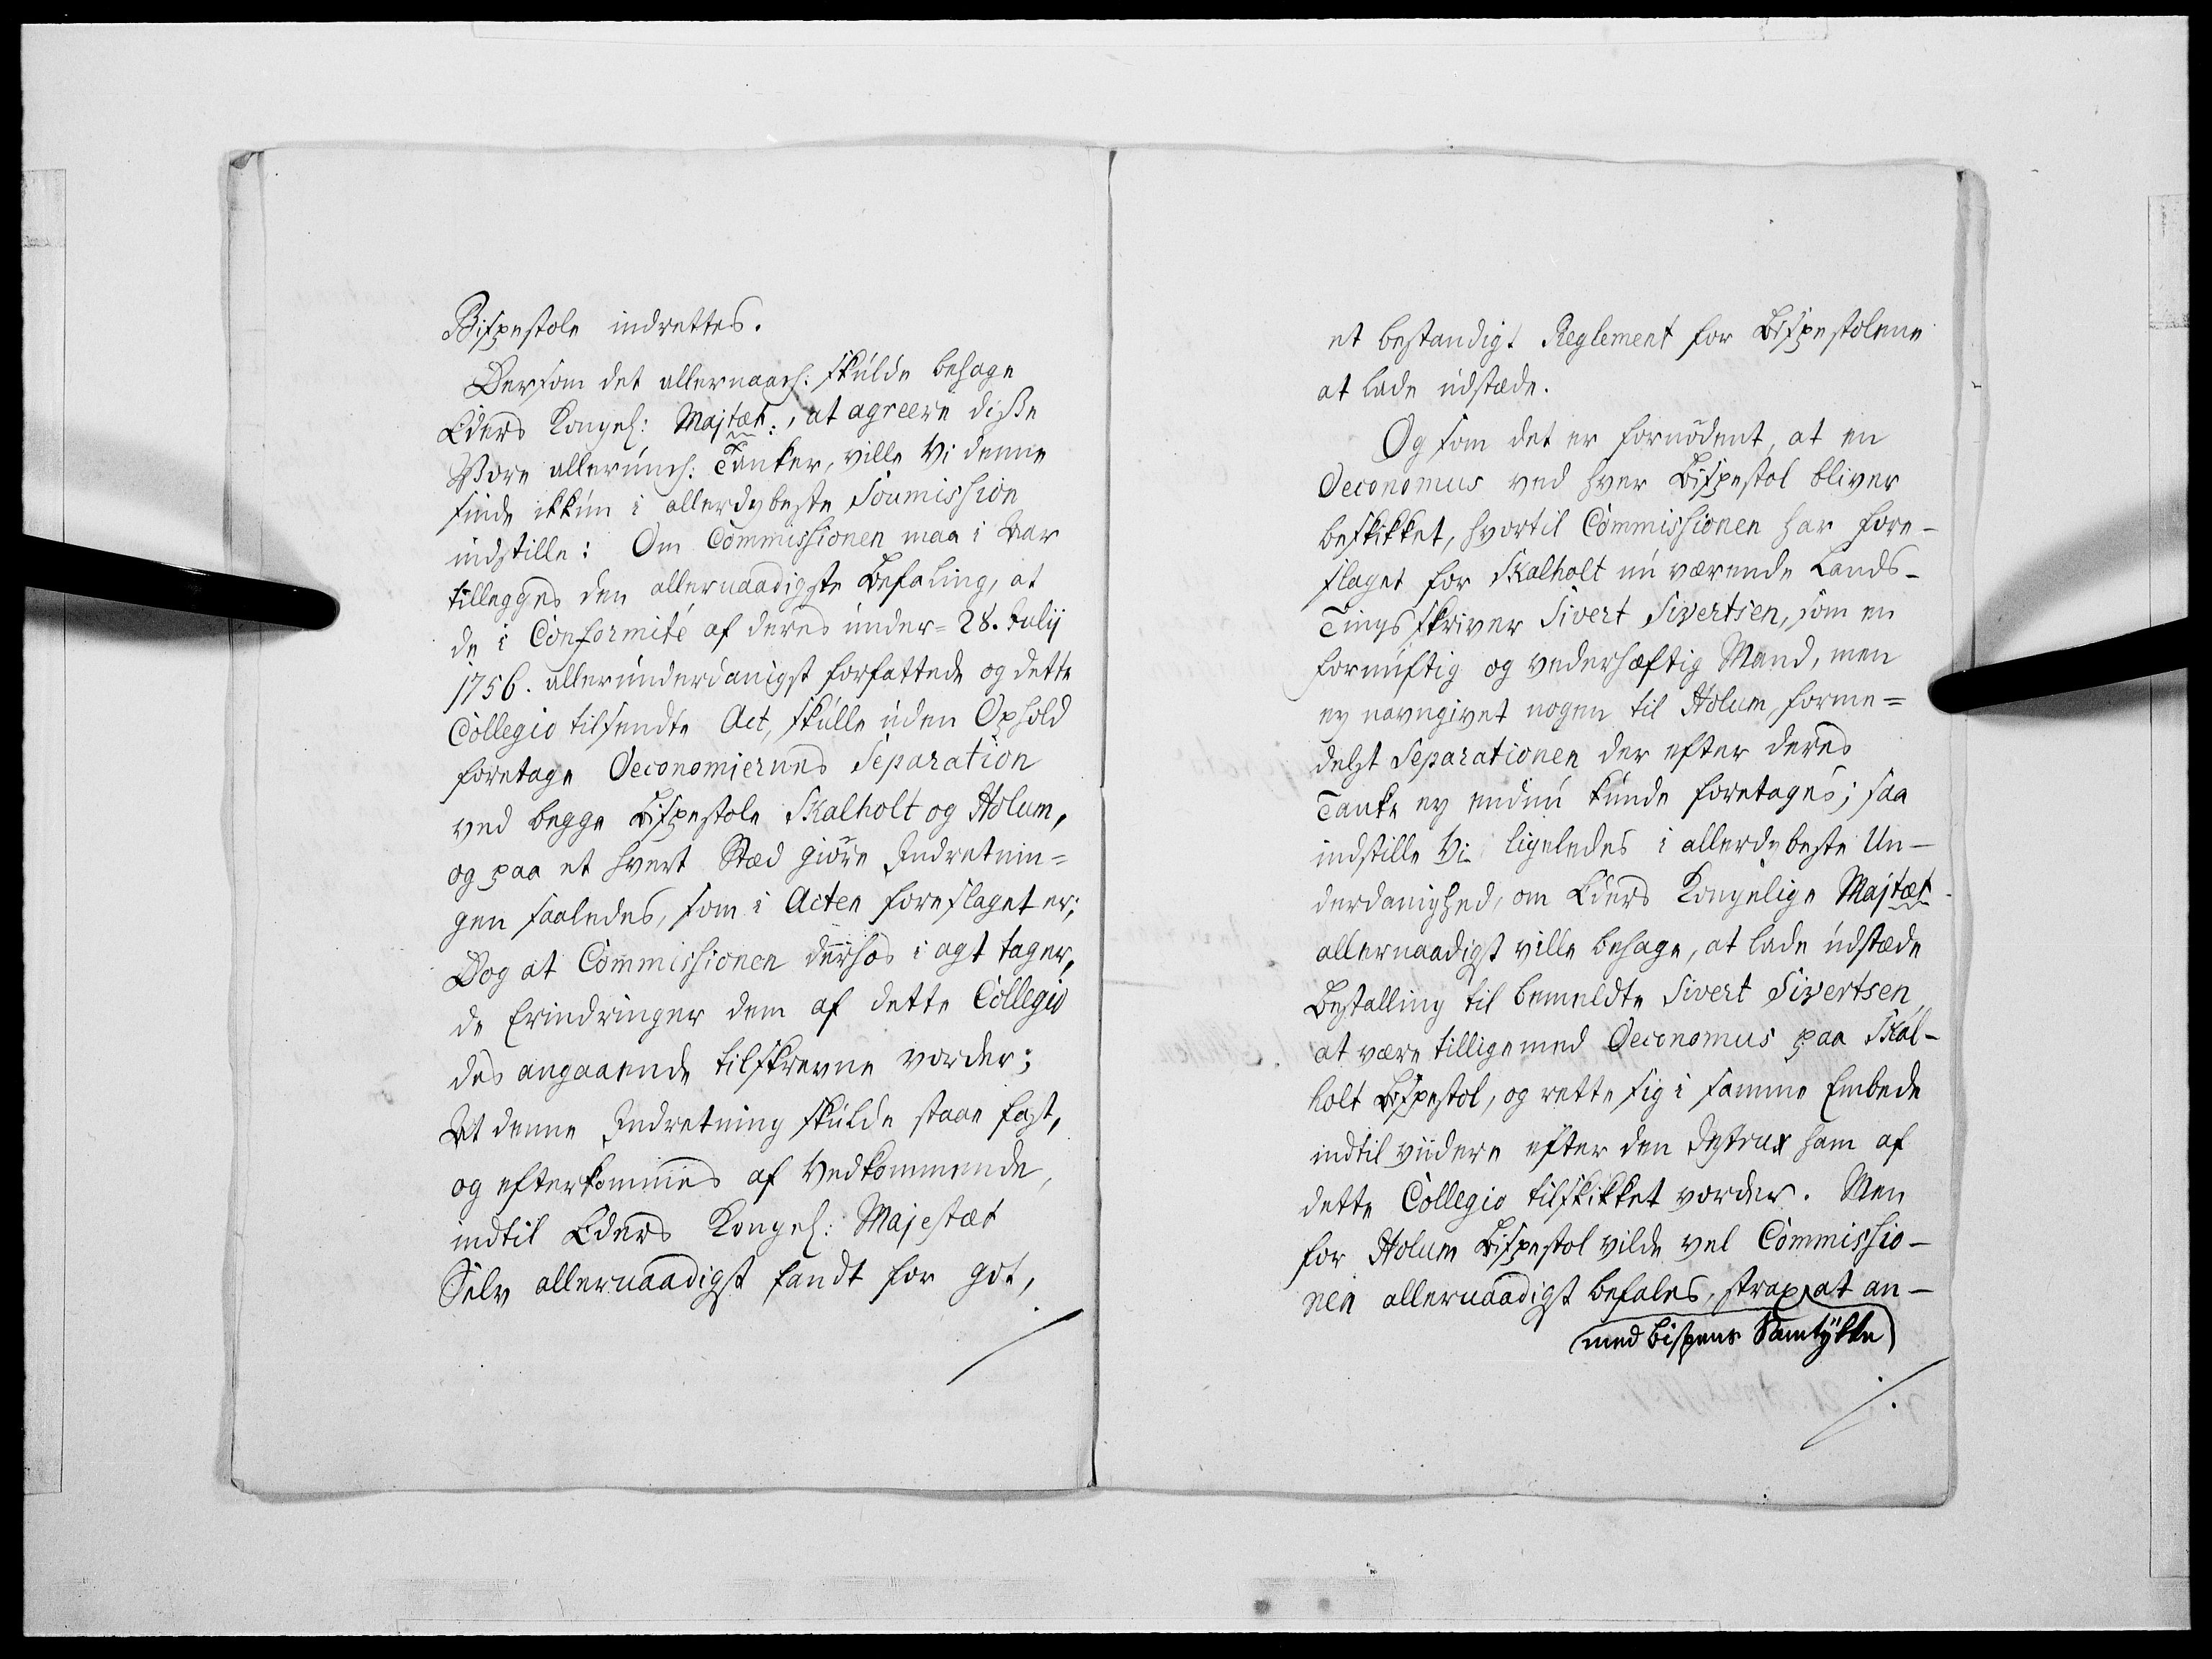 Bispestole indrettes.
Dersom det allernaad: skulde behage
Eders Kongel: Majtæt:, at agreere disse
Vore allerund: Tanker, ville Vi denne
sinde ikkun i allerdybeste Soumission
indstille: Om Commissionen maa i Aar
tillegges den allernaadigste Befaling, at
de i Conformité af deres under= 28. Julij
1756. allerunderdanigst forfattede og dette
Collegio tilsendte Act, skulle uden Ophold
foretage Oeconomiernes Separation
ved begge Bispestole Skalholt og Holum,
og paa et hvert Stæd giöre Indretnin=
gen saaledes, som i Acten foreslaget er;
Dog at Commissionen derhos i agt tager,
de Erindringer dem af dette Collegio
des angaaende tilskrevne vorder;
At denne Indretning skulde staae fast,
og efterkommes af Vedkommende,
indtil Eders Kongel: Majestæt
Selv allernaadigst fandt for got,
et bestandigt Reglement for Bispestolene
at lade udstæde.
Og som det er fornödent, at en
Oeconomus ved hver Bispestol bliver
beskikket, hvortil Commissionen har fore-
slaget for Skalholt nu værende Lands-
Tingsskriver Sivert Sivertsen, som en
fornuftig og vederhæftig Mand, men
ey navngivet nogen til Holum, forme=
delst Separationen der efter deres
Tanke ey endnu kunde foretages; saa
indstille Vi ligeledes i allerdybeste Un-
derdanighed, om Eders Kongelige Majtæt
allernaadigst ville behage, at lade udstæde
Bestalling til bemeldte Sivert Sivertsen,
at være tilligemed Oeconomus paa Skal-
holt Bispestol, og rette sig i samme Embede
indtil viidere efter den Instrux ham af
dette Collegio tilskikket vorder. Men
for Holum Bispestol vilde vel Commissio-
nen allernaadigst befales, strax at an-
med Bispens Samtÿkke